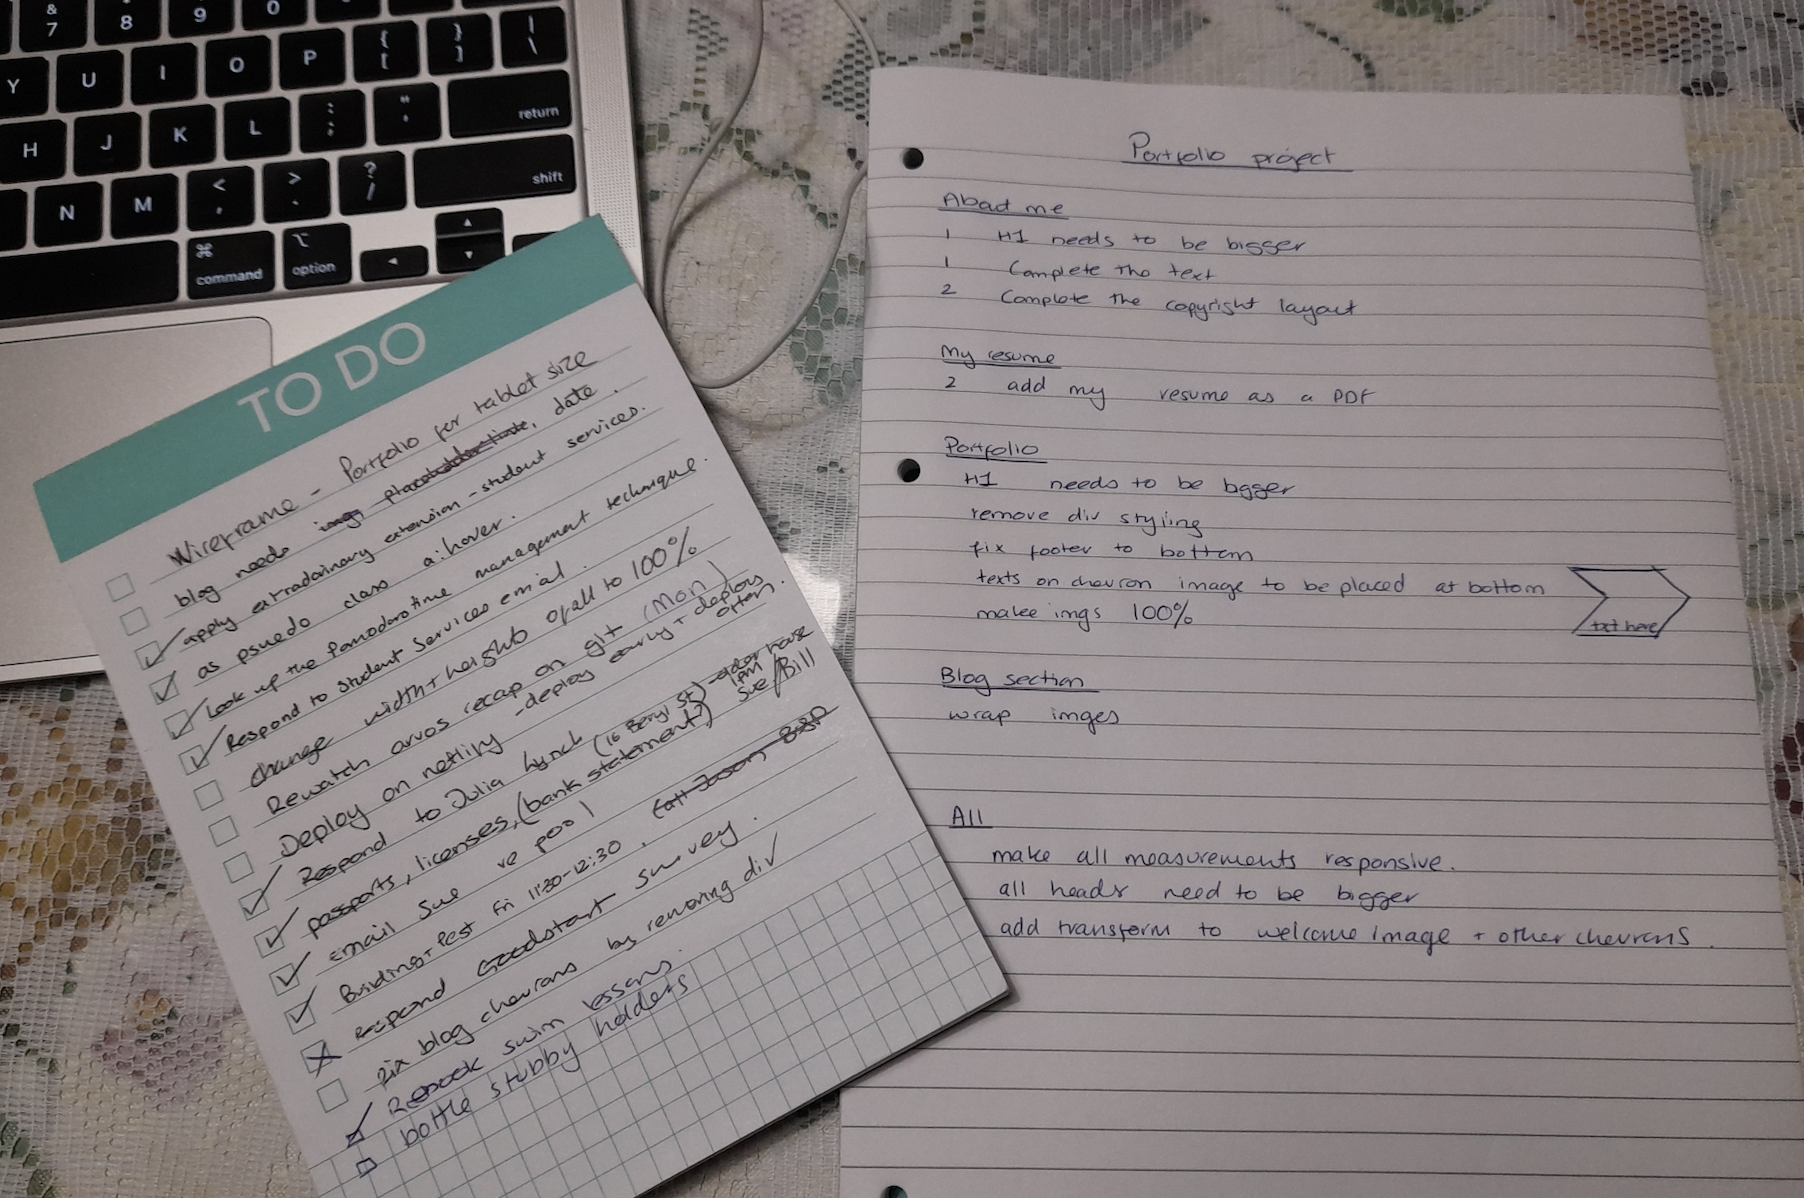 & 7
8
9
0
Y
U
I
O
P
{ [
} ]
| \
H
J
K
L
: ;
" '
return
N
M
< ,
> .
? /
shift
⌘ command
⌥ option
TO DO
Wireframe - Portfolio for tablet size
blog needs img, placeholder date.
apply extradoinary extension - student services.
as psuedo class a:hover.
Look up the Pomodoro time management technique.
Respond to Student Services emial.
change width + heights of all to 100%
Rewatch arvos recap on git (Mon)
Deploy on netlify - deploy early + deploy often
Respond to Julia Lynch (16 Beryl St) - older house
passports, licenses, (bank statement?) 1PM Sue/Bill
email Sue re pool
Building + Pest Fri 11:30-12:30. Call Jason B&P
respond Goodstart survey.
fix blog chevrons by removing div
Rebook swim lessons.
bottle stubby holders
Portfolio project
About me
1 H1 needs to be bigger
1 Complete the text
2 Complete the copyright layout
My resume
2 add my resume as a PDF
Portfolio
H1 needs to be bgger
remove div styling
fix footer to bottom
texts on chevron image to be placed at bottom
txt here
make imgs 100%
Blog section
wrap imges
All
make all measurements responsive.
all heads need to be bigger
add transform to welcome image + other chevrons.